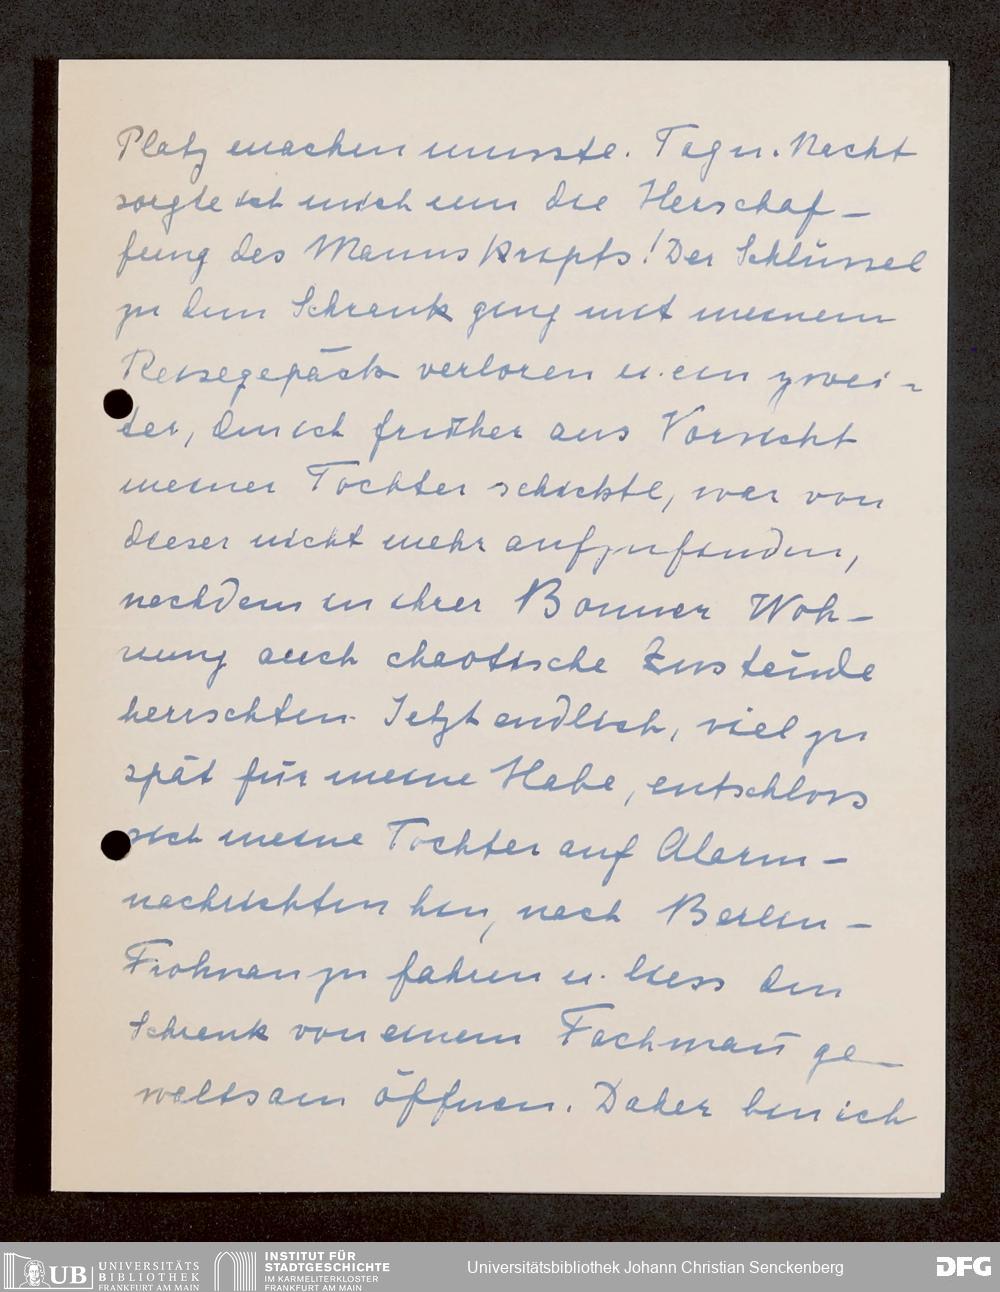 Platz machen musste. Tag u. Nacht
sorgte ich mich um die Herschaf-
fung des Manuskripts! Der Schlüssel
zu dem Schrank ging mit meinem
Reisegepäck verloren u. ein zwei-
ter, den ich früher aus Vorsicht
meiner Tochter schickte, war von
dieser nicht mehr aufzufinden,
nachdem in ihrer Bonner Woh-
nung auch chaotische Zustände
herrschten. Jetzt endlich, viel zu
spät für meine Habe, entschloss
sich meine Tochter auf Alarm-
nachrichten hin, nach Berlin-
Frohnau zu fahren u. liess den
Schrank von einem Fachmañ ge-
waltsam öffnen. Daher bin ich
UB UNIVERSITÄTS
BIBLIOTHEK
FRANKFURT AM MAIN
INSTITUT FÜR
STADTGESCHICHTE
IM KARMELITERKLOSTER
FRANKFURT AM MAIN
Universitätsbibliothek Johann Christian Senckenberg
DFG